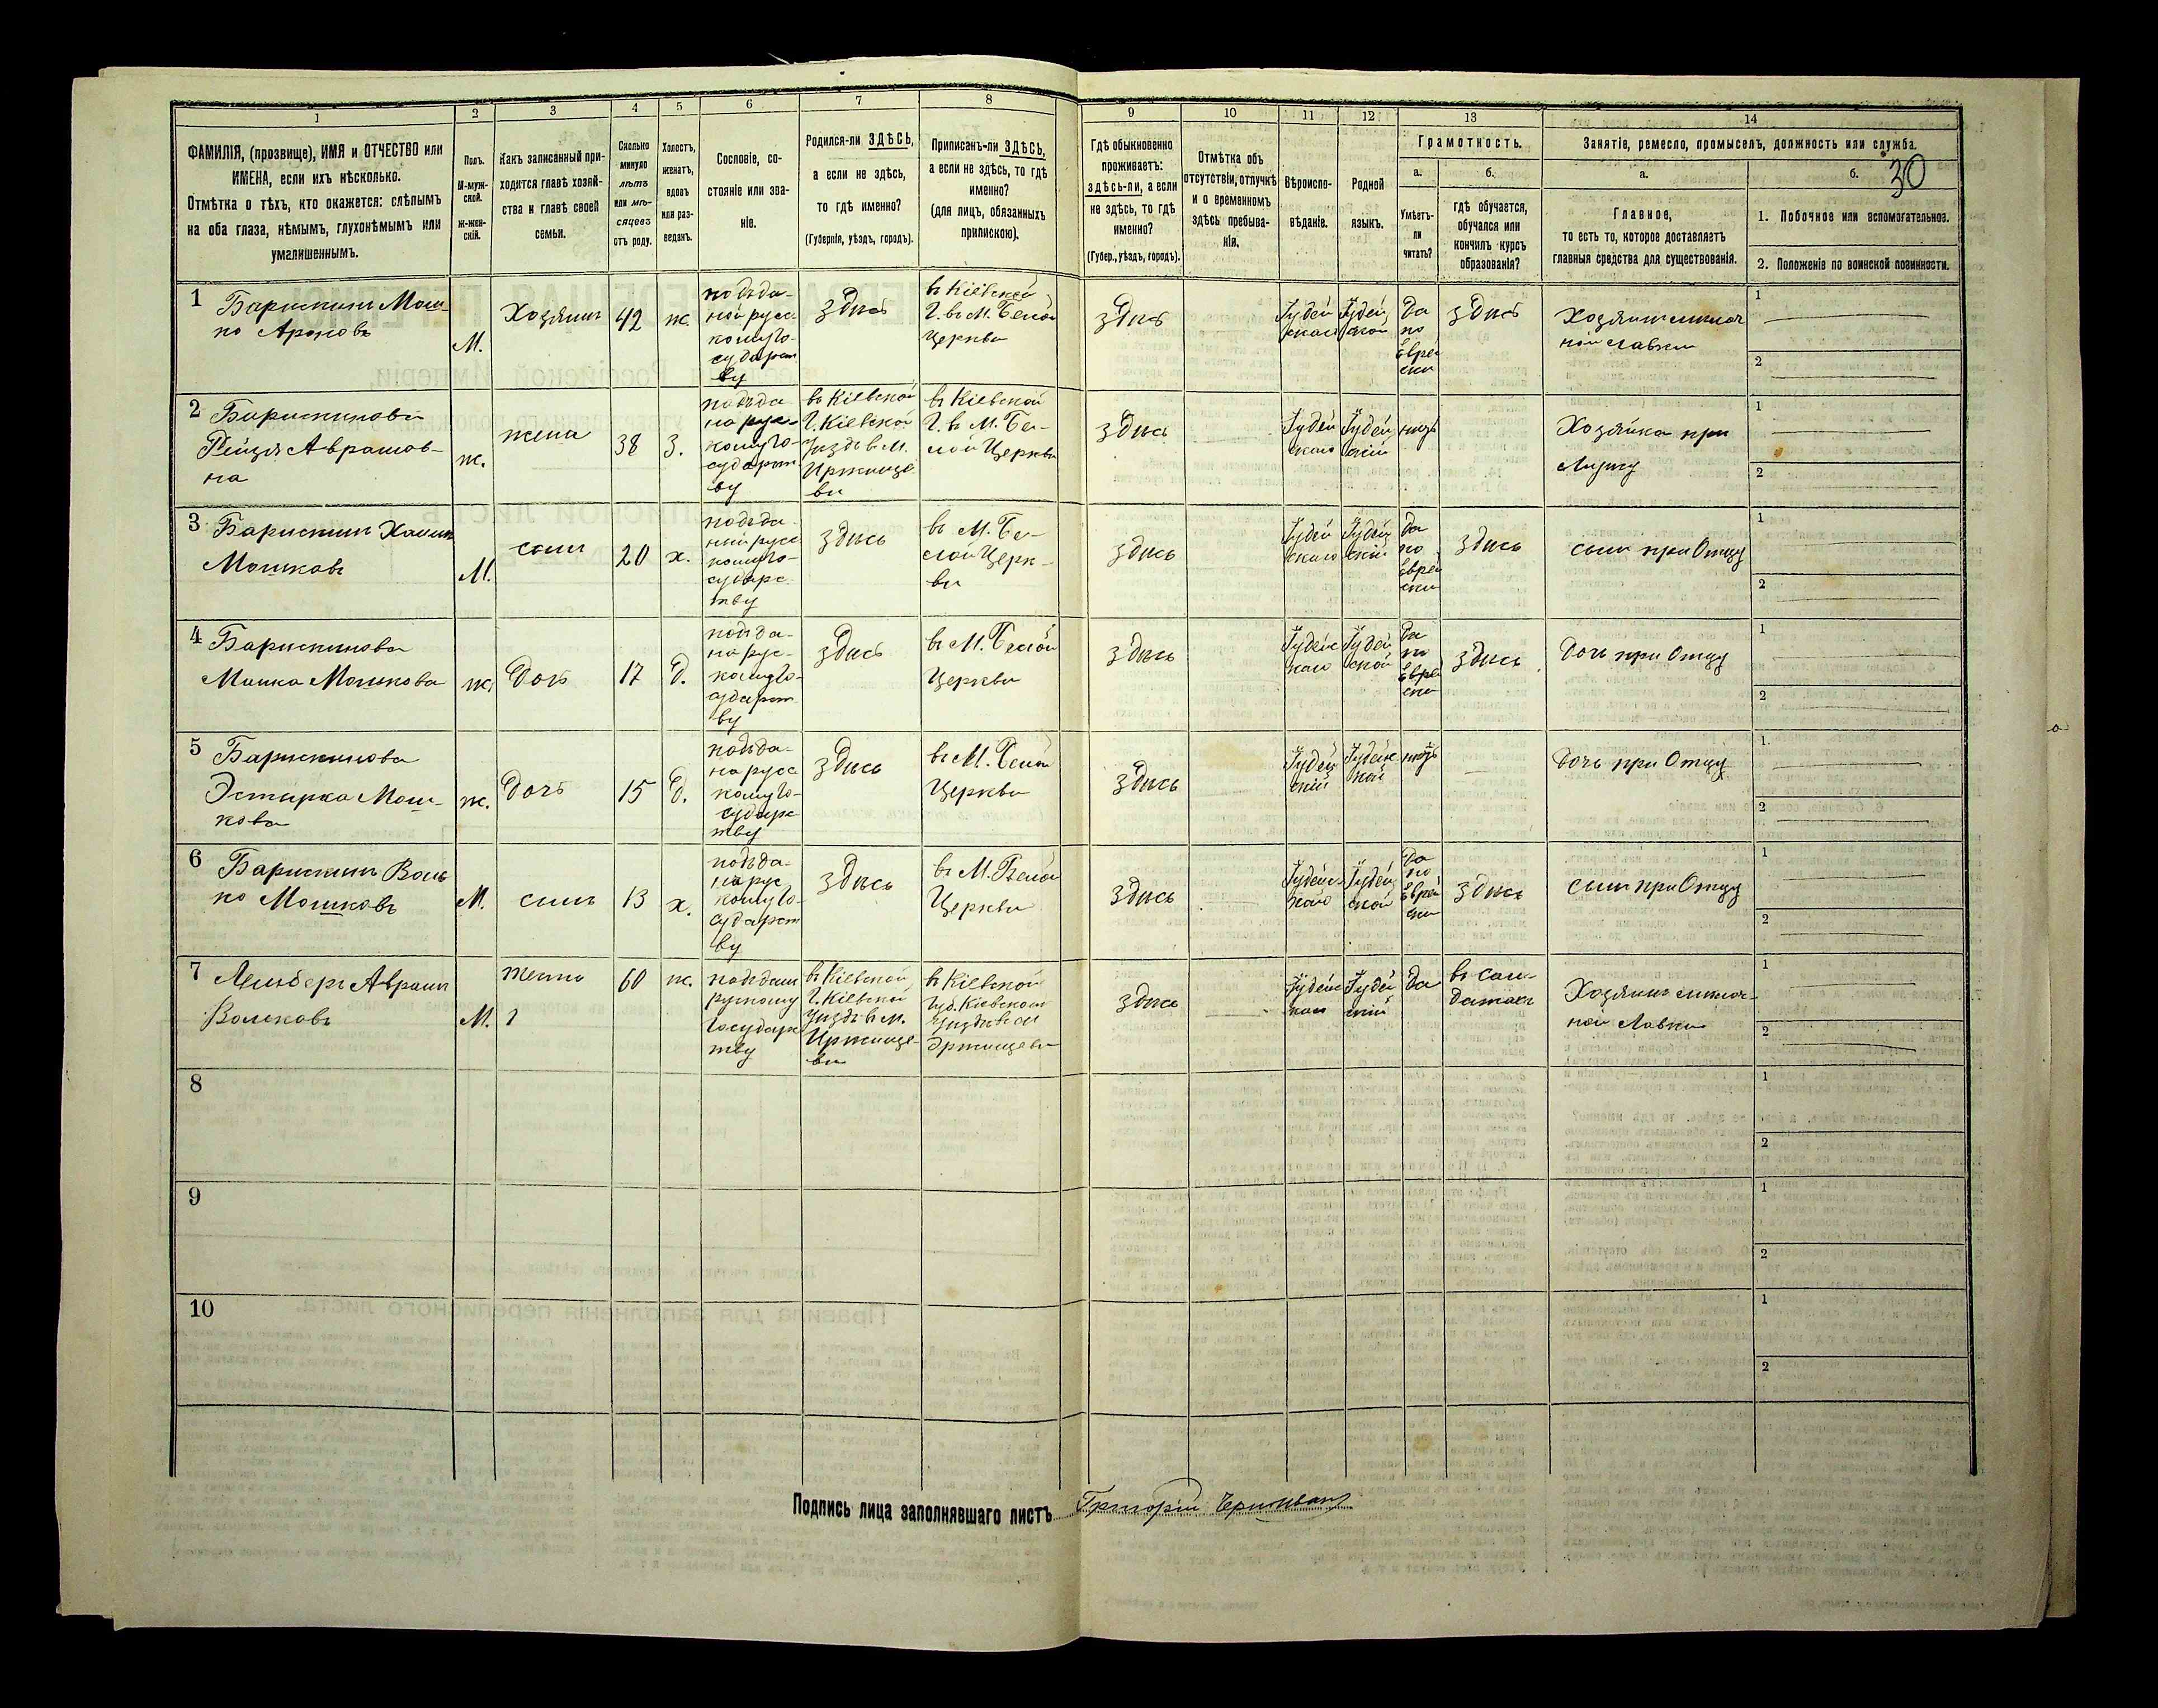 1
2
3
4
5
6
7
8
9
10
11
12
13
14
ФАМИЛІЯ, (прозвище), ИМЯ и ОТЧЕСТВО или
ИМЕНА, если ихъ нѣсколько.
Отмѣтка о тѣхъ, кто окажется: слѣпымъ
на оба глаза, нѣмымъ, глухонѣмымъ или
умалишеннымъ.
Полъ.
М-муж-
ской.
Ж-жен-
скій.
Какъ записанный при-
ходится главѣ хозяй-
ства и главѣ своей
семьи.
Сколько
минуло
лѣтъ
или мѣ-
сяцевъ
отъ роду.
Холостъ,
женатъ,
вдовъ
или раз-
веденъ.
Сословіе, со-
стояніе или зва-
ніе.
Родился-ли ЗДѢСЬ,
а если не здѣсь,
то гдѣ именно?
(Губернія, уѣздъ, городъ).
Приписанъ-ли ЗДѢСЬ,
а если не здѣсь, то гдѣ
именно?
(для лицъ, обязанныхъ
припискою).
Гдѣ обыкновенно
проживаетъ:
здѣсь-ли, а если
не здѣсь, то гдѣ
именно?
(Губер., уѣздъ, городъ).
Отмѣтка объ
отсутствіи, отлучкѣ
и о временномъ
здѣсь пребыва-
ніи.
Вѣроиспо-
вѣданіе.
Родной
языкъ.
Грамотность.
а.
Умѣетъ-
ли
читать?
б.
гдѣ обучается,
обучался или
кончилъ курсъ
образованія?
Занятіе, ремесло, промыселъ, должность или служба.
а.
Главное,
то есть то, которое доставляетъ
главныя средства для существованія.
б.
30
1. Побочное или вспомогательное.
2. Положеніе по воинской повинности.
1
Барискинъ Мош-
ко Ароновъ
М.
Хозяинъ
42
ж.
подъда-
ной русс
кому Го-
сударст
ву
здѣсь
въ Кіевской
Г. въ М. Белой
Церкви
здѣсь
Іудей
скаго
Іудей
ской
Да
по
Еврей
ски
здѣсь
Хозяинъ мѣлоч
ной лавки
1
2
2
Барискинова
Рейзя Аврамов-
на
ж.
жена
38
З.
подъда
на рус-
кому Го-
сударст
ву
въ Кіевской
Г. Кіевской
Уездъ в М.
Иржище-
ви
въ Кіевской
Г. въ М. Бе-
лой Церкви
здѣсь
Іудей
скаго
Іудей
скій
нѣтъ
Хозяйка при
Мужу
1
2
3
Барискинъ Хаимъ
Мошковъ
М.
сынъ
20
х.
подъда-
ный русс
кому Го-
сударс
тву
здѣсь
въ М. Бе-
лой Церк-
ви
здѣсь
Іудей
скаго
Іудей
скій
Да
по
Еврей
ски
здѣсь
сынъ при Отцу
1
2
4
Барискинова
Малка Мошкова
ж.
Дочь
17
Д.
подъда-
на рус-
кому Го-
сударст
ву
здѣсь
въ М. Белой
Церкви
здѣсь
Іудейс
каго
Іудей
ской
Да
по
Еврей
ски
здѣсь
Дочь при Отцу
1
2
5
Барискинова
Эстырка Мош-
кова
ж.
Дочь
15
Д.
подъда-
на русс
кому Го-
сударс
тву
здѣсь
въ М. Белой
Церкви
здѣсь
Іудей
скій
Іудейс
кой
нѣтъ
Дочь при Отцу
1.
2
6
Барискинъ Воль
ко Мошковъ
М.
сынъ
13
х.
подъда-
на рус
кому Го-
сударст
ву
здѣсь
въ М. Белой
Церкви
здѣсь
Іудейс
каго
Іудей
ской
Да
по
Еврей
ски
здѣсь
сынъ при Отцу
1
2
7
Авраамъ
Волковъ
М.
60
ж.
подъданъ
рускому
Государс
тву
въ Кіевской
Г. Кіевской
Уездъ в М.
Иржище-
ви
въ Кіевской
Губ. Кіевскомъ
Уездъ в М
Эржищеви
здѣсь
Іудейс
каго
Іудей
скій
Да
въ Сол-
датахъ
Хозяинъ мѣлоч
ной Лавки
1
2
8
1
2
9
1
2
10
1
2
Подпись лица заполнявшаго листъ